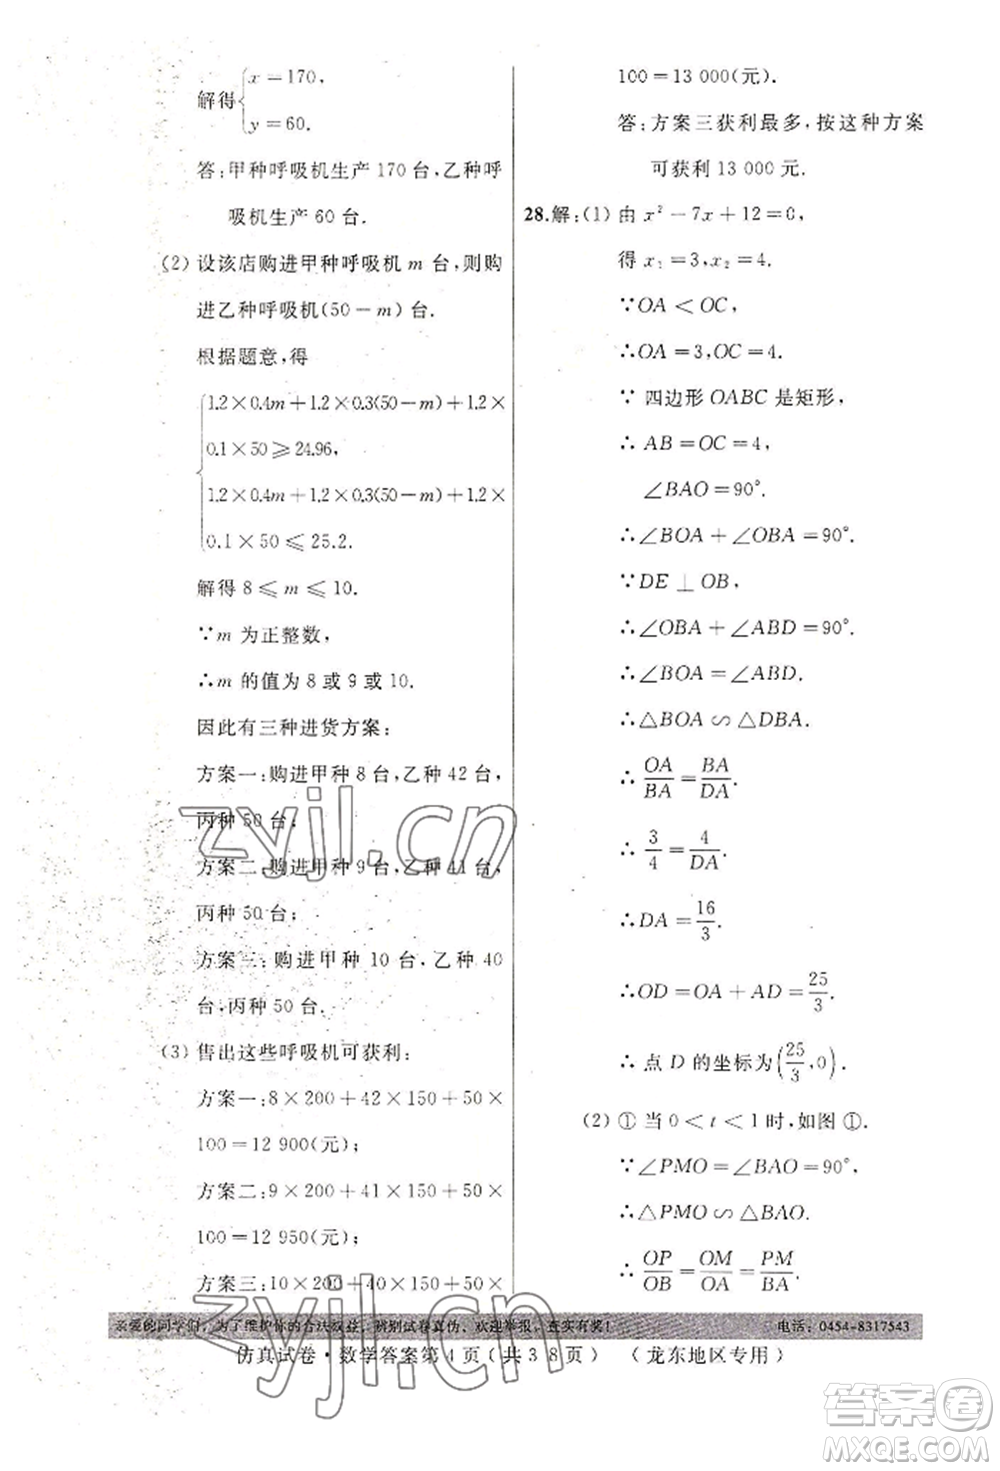 解得{x=170,
y=60.
答:甲种呼吸机生产 170 台,乙种呼
吸机生产 60 台.
(2) 设该店购进甲种呼吸机 m 台,则购
进乙种呼吸机(50-m)台.
根据题意,得
{1.2×0.4m+1.2×0.3(50-m)+1.2×
0.1×50⩾24.96,
1.2×0.4m+1.2×0.3(50-m)+1.2×
0.1×50⩽25.2.
解得 8⩽m⩽10.
∵m 为正整数,
∴m 的值为 8 或 9 或 10.
因此有三种进货方案:
方案一:购进甲种 8 台,乙种 42 台,
丙种 50 台;
方案二:购进甲种 9 台,乙种 41 台,
丙种 50 台;
方案三:购进甲种 10 台,乙种 40
台,丙种 50 台.
(3) 售出这些呼吸机可获利:
方案一:8×200+42×150+50×
100=12 900(元);
方案二:9×200+41×150+50×
100=12 950(元);
方案三:10×200+40×150+50×
100=13 000(元).
答:方案三获利最多,按这种方案
可获利 13 000 元.
28.解:(1) 由 x²-7x+12=0,
得 x₁=3,x₂=4.
∵OA<OC,
∴OA=3,OC=4.
∵ 四边形 OABC 是矩形,
∴ AB=OC=4,
∠BAO=90°.
∴∠BOA+∠OBA=90°.
∵DE⊥OB,
∴∠OBA+∠ABD=90°.
∴∠BOA=∠ABD.
∴△BOA∽△DBA.
∴ OA/BA=BA/DA.
∴ 3/4=4/DA.
∴DA=16/3.
∴OD=OA+AD=25/3.
∴ 点 D 的坐标为(25/3,0).
(2) ① 当 0<t<1 时,如图 ①.
∵∠PMO=∠BAO=90°.
∴△PMO∽△BAO.
∴ OP/OB=OM/OA=PM/BA.
亲爱的同学们,为了维护你的合法权益,辨别试卷真伪、欢迎举报,查实有奖! 电话:0454-8317543
仿真试卷·数学答案第4页(共38页) (龙东地区专用)
zyjl.cn
zyjl.cn
答案卷
MXQE.COM